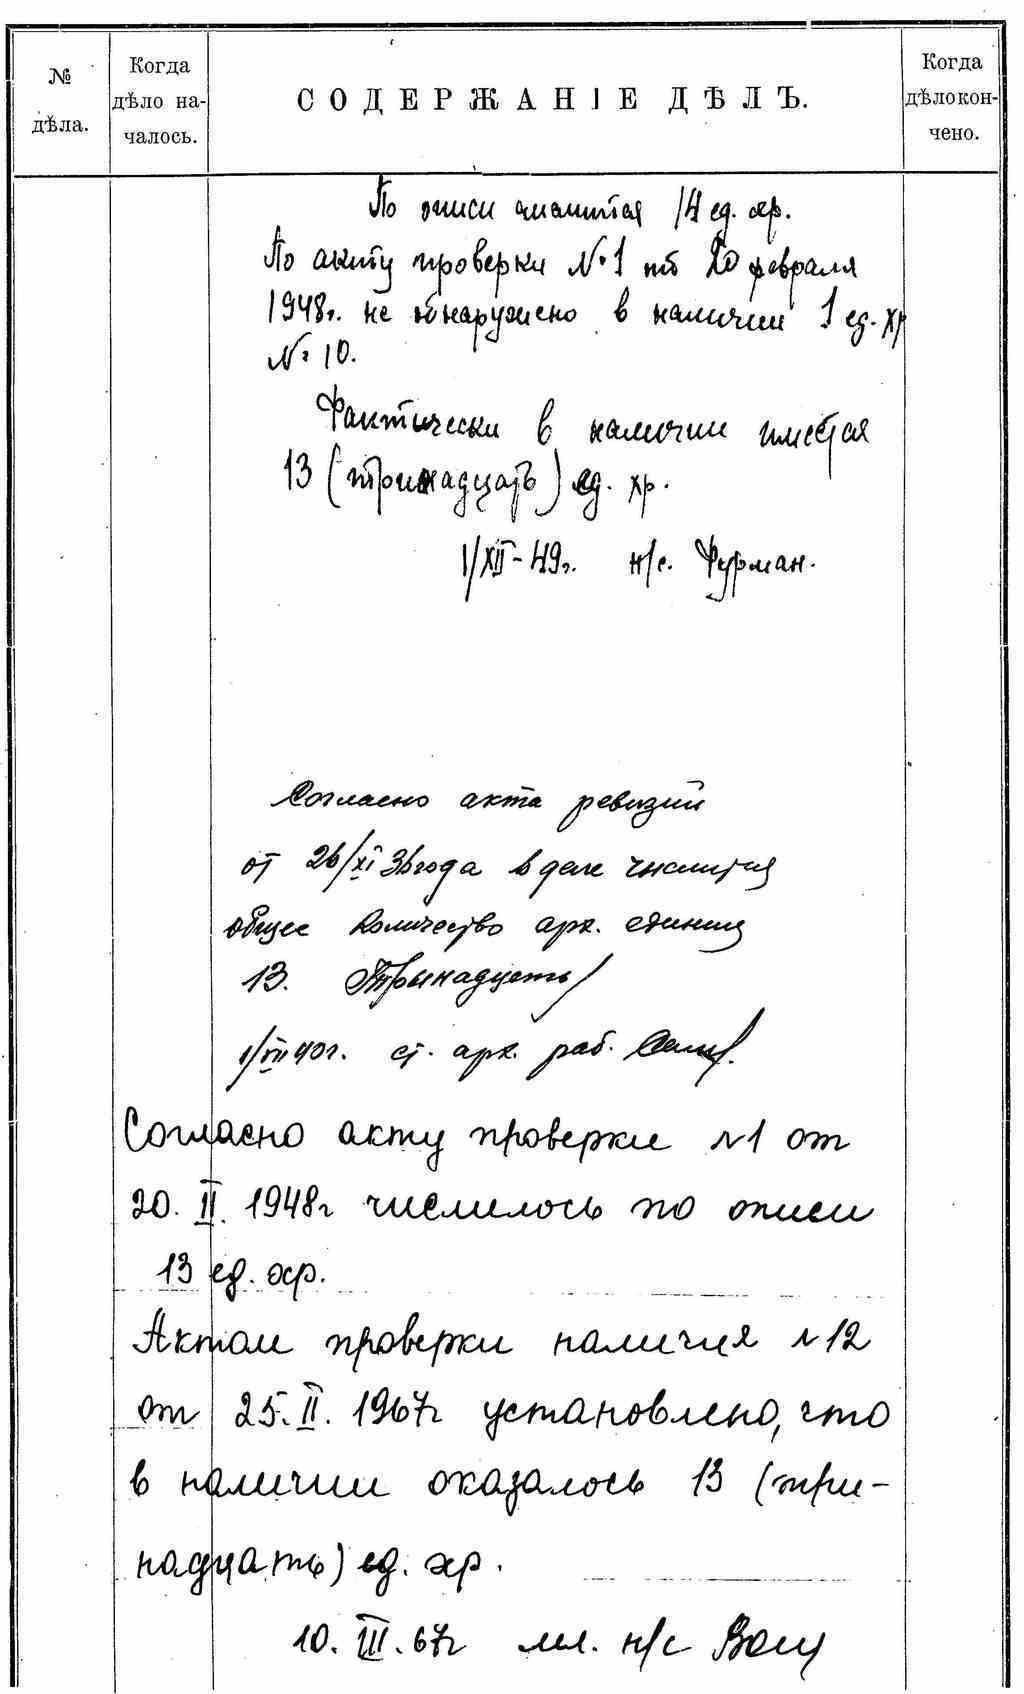 № дѣла.
Когда дѣло на-чалось.
СОДЕРЖАНІЕ ДѢЛЪ.
Когда дѣло кон-чено.
По описи числится 14 ед. хр.
По акту проверки №1 от 20 февраля
1948г. не обнаружено в наличии 1 ед. хр
№ 10.
Фактически в наличии имеется
13 (тринадцать) ед. хр.
1/XII-49г. н/с. Фурман.
Согласно акта ревизии
от 26/XI 36 года в деле числится
общее количество арх. единиц
13. Тринадцать/
1/VII 40г. ст. арх. раб.
Согласно акту проверки №1 от
20. II. 1948г числилось по описи
13 ед. хр.
Актом проверки наличия №12
от 25. II. 1967г установлено, что
в наличии оказалось 13 (три-
надцать) ед. хр.
10. III. 67г мл. н/с